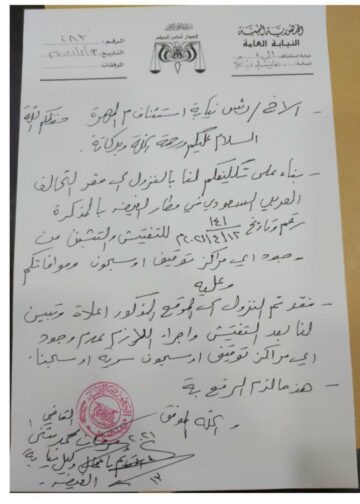 الجمهورية اليمنية
النيابة العامة
الرقم: ٢٨٣
التاريخ:
المرفقات:
الأخ / رئيس نيابة استئناف م المهرة حفظكم الله
السلام عليكم ورحمة الله وبركاته
- بناء على تكليفكم لنا بالنزول الى مقر التحالف
العربي السعودي في مطار الغيضه بالمذكرة
رقم وتاريخ ١٤١ ٢٠٢١/٤/١٣ للتفتيش من
وجود اي مراكز توقيف او سجون وموافاتكم
وعليه
- فقد تم النزول الى الموقع المذكور اعلاة وتبين
لنا بعد التفتيش واجراء اللازم عدم وجود
اي مراكز توقيف او سجون سريه او سجينا.
- هذا مالزم الرفع به
والله الموفق
القاضي
محمد
وكيل نيابة
الغيضة